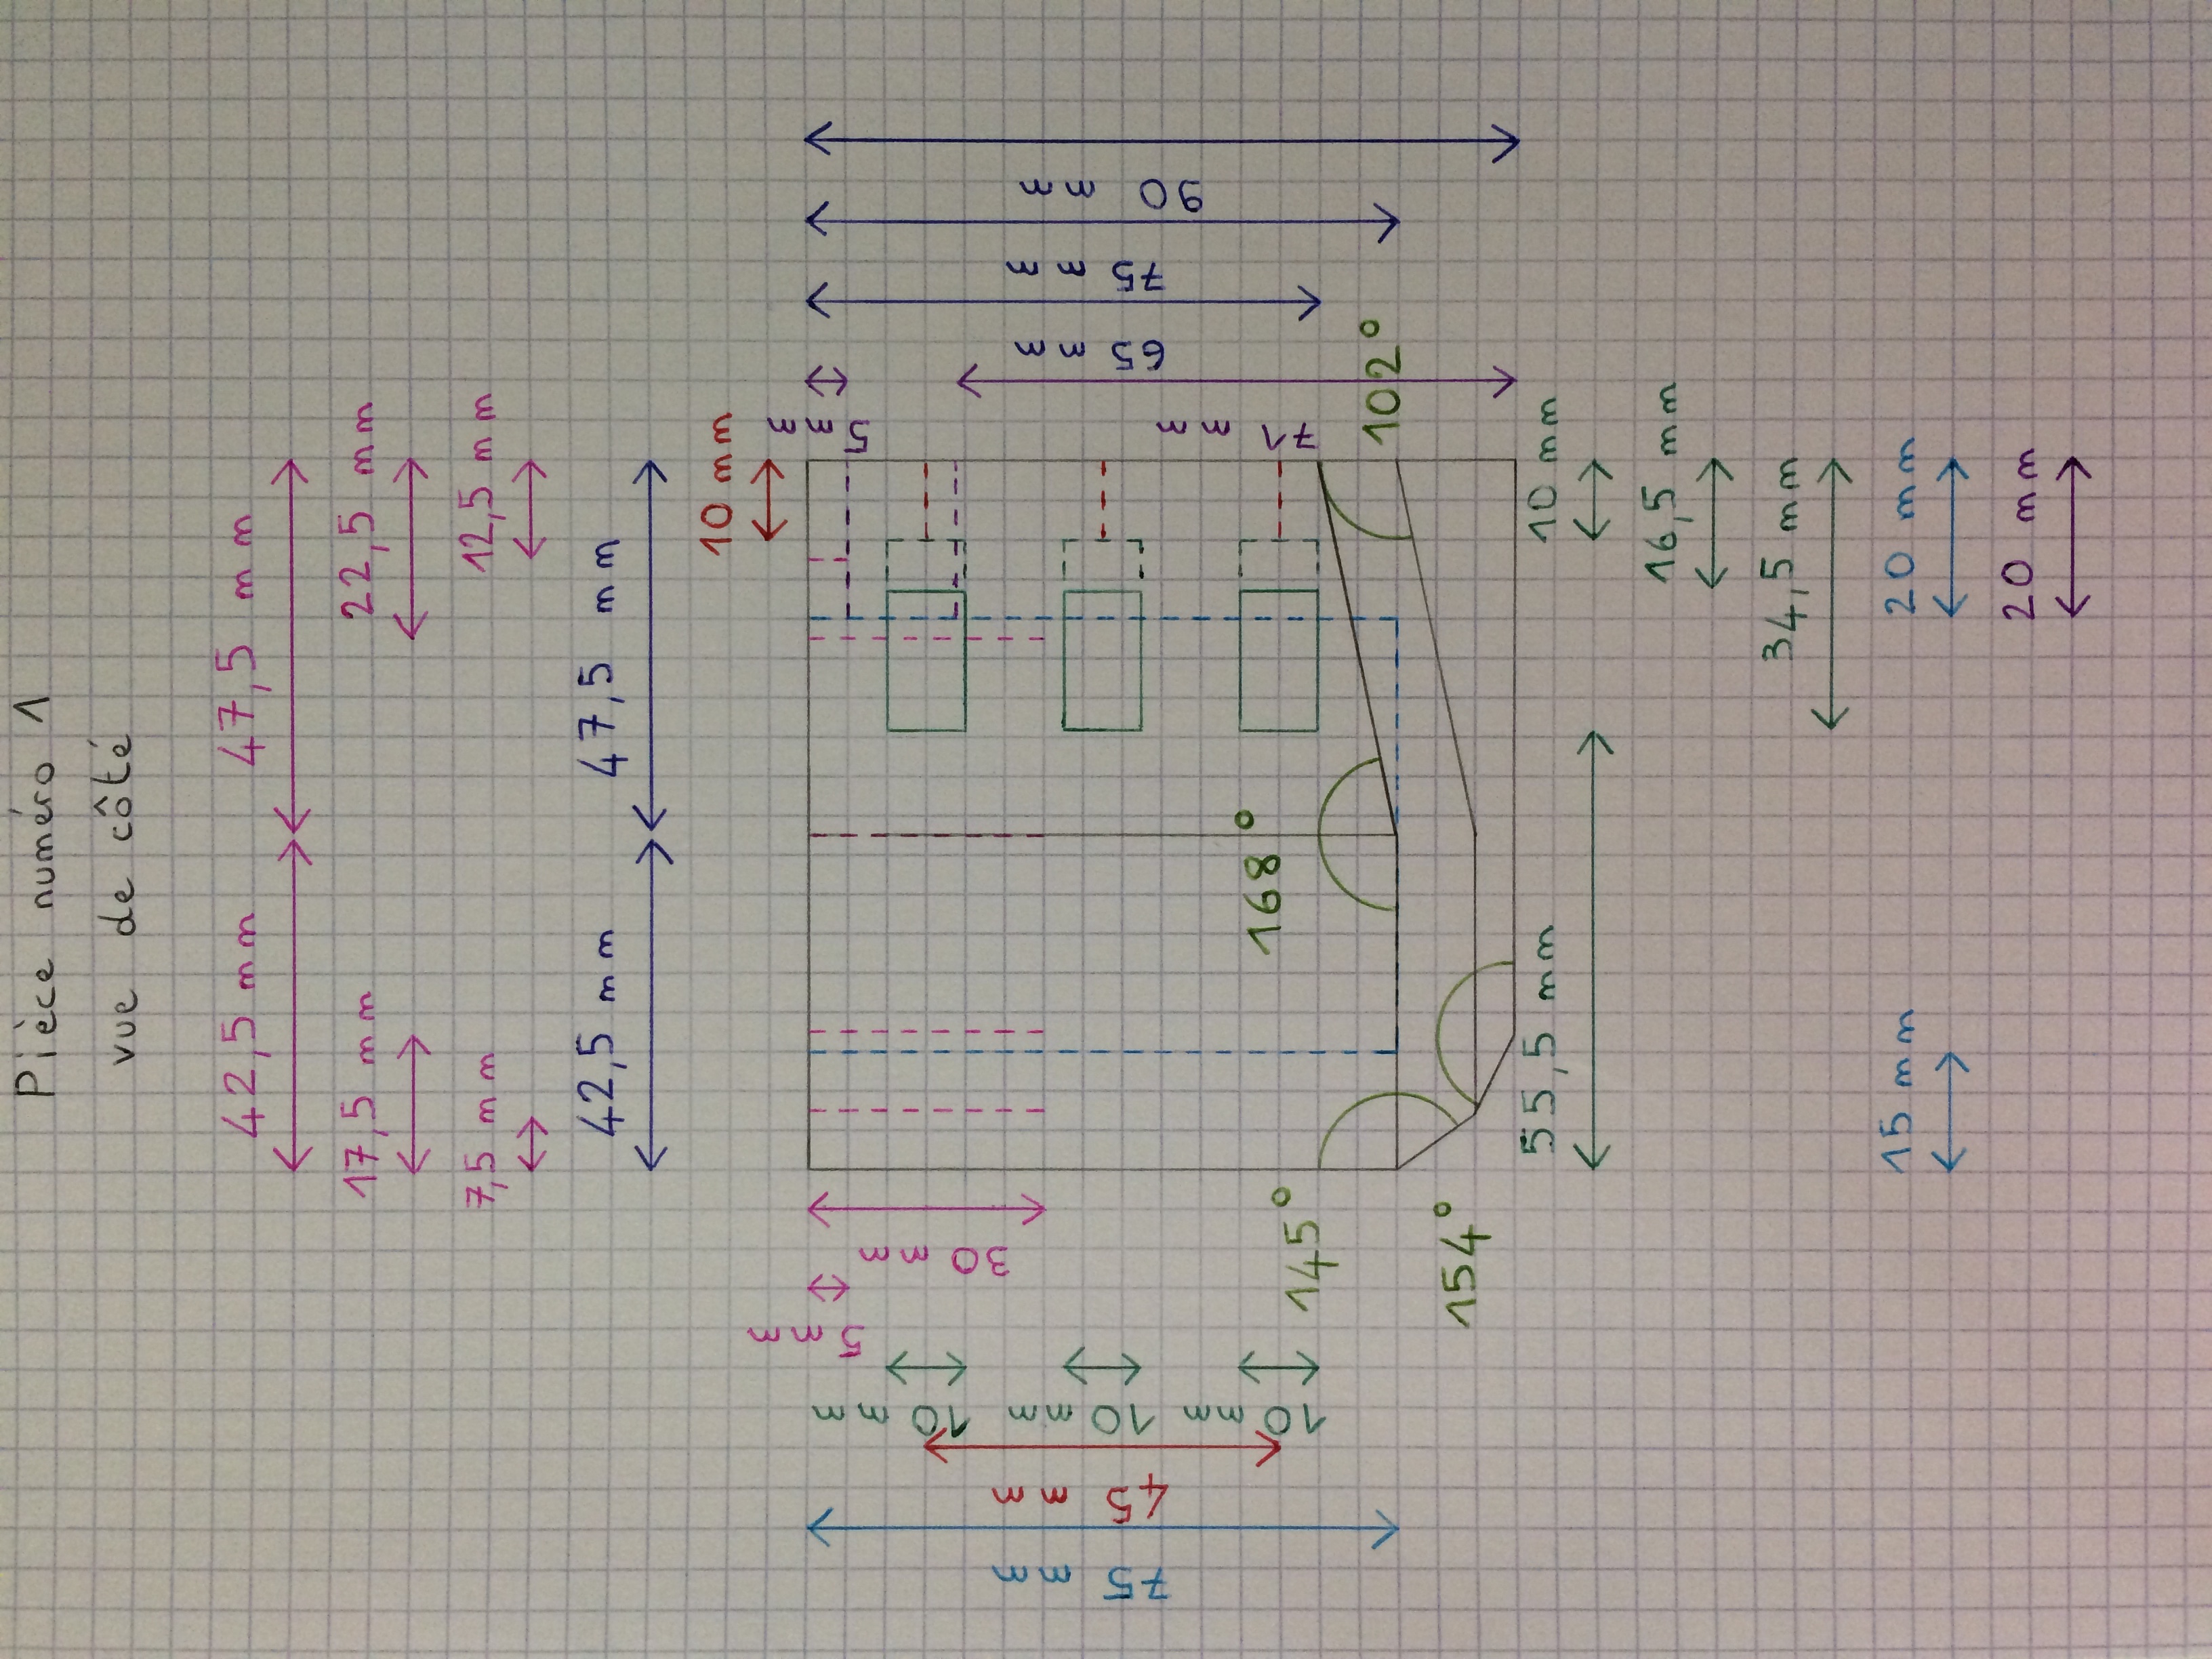 Pièce numéro 1
vue de côté
42,5 mm
47,5 mm
17,5 mm
22,5 mm
7,5 mm
12,5 mm
42,5 mm
47,5 mm
10 mm
30 mm
5 mm
10 mm
10 mm
10 mm
45 mm
75 mm
5 mm
71 mm
65 mm
75 mm
90 mm
168°
102°
145°
154°
55,5 mm
10 mm
16,5 mm
34,5 mm
15 mm
20 mm
20 mm